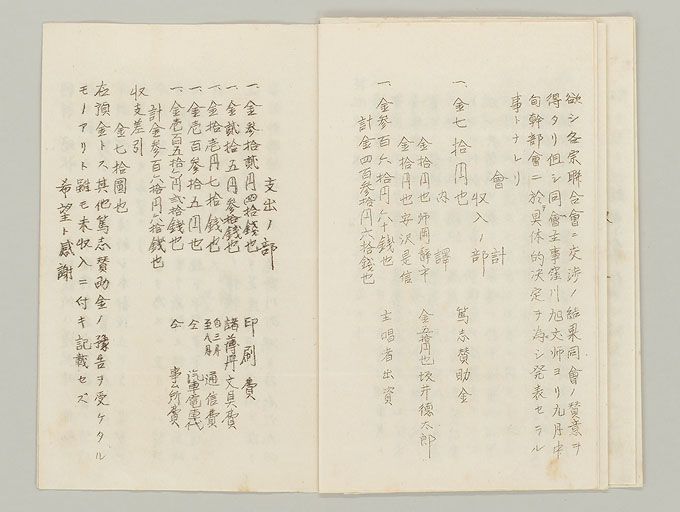 欲シ各宗聯合會ニ交渉ノ結果同會ノ賛意ヲ
得タリ但シ同會主事窪川旭丈師ヨリ九月中
旬幹部會ニ於具体的決定ヲ為シ発表セラル
事トナレリ
會計
収入ノ部
一、金七拾円也 篤志賛助金
内譯
金拾円也 師岡静平 金五拾円也 坂井徳太郎
金拾円也 安沢是信
一、金参百六拾円六十銭也 主唱者出資
計金四百参拾円六拾銭也
支出ノ部
一、金参拾貮円四拾銭也 印刷費
一、金貮拾五円参拾銭也 諸薄丹文具費
一、金拾壱円七拾銭也 自三月至八月 通信費
一、金壱百参拾五円也 仝 汽車電車代
一、金壱百五拾六円貮拾銭也 仝 事ム所費
計金参百六拾円六拾銭也
収支差引
金七拾圓也
在預金トス其他篤志賛助金ノ豫告ヲ受ケタル
モノアリト雖モ未収入ニ付キ記載セズ
希望ト感謝